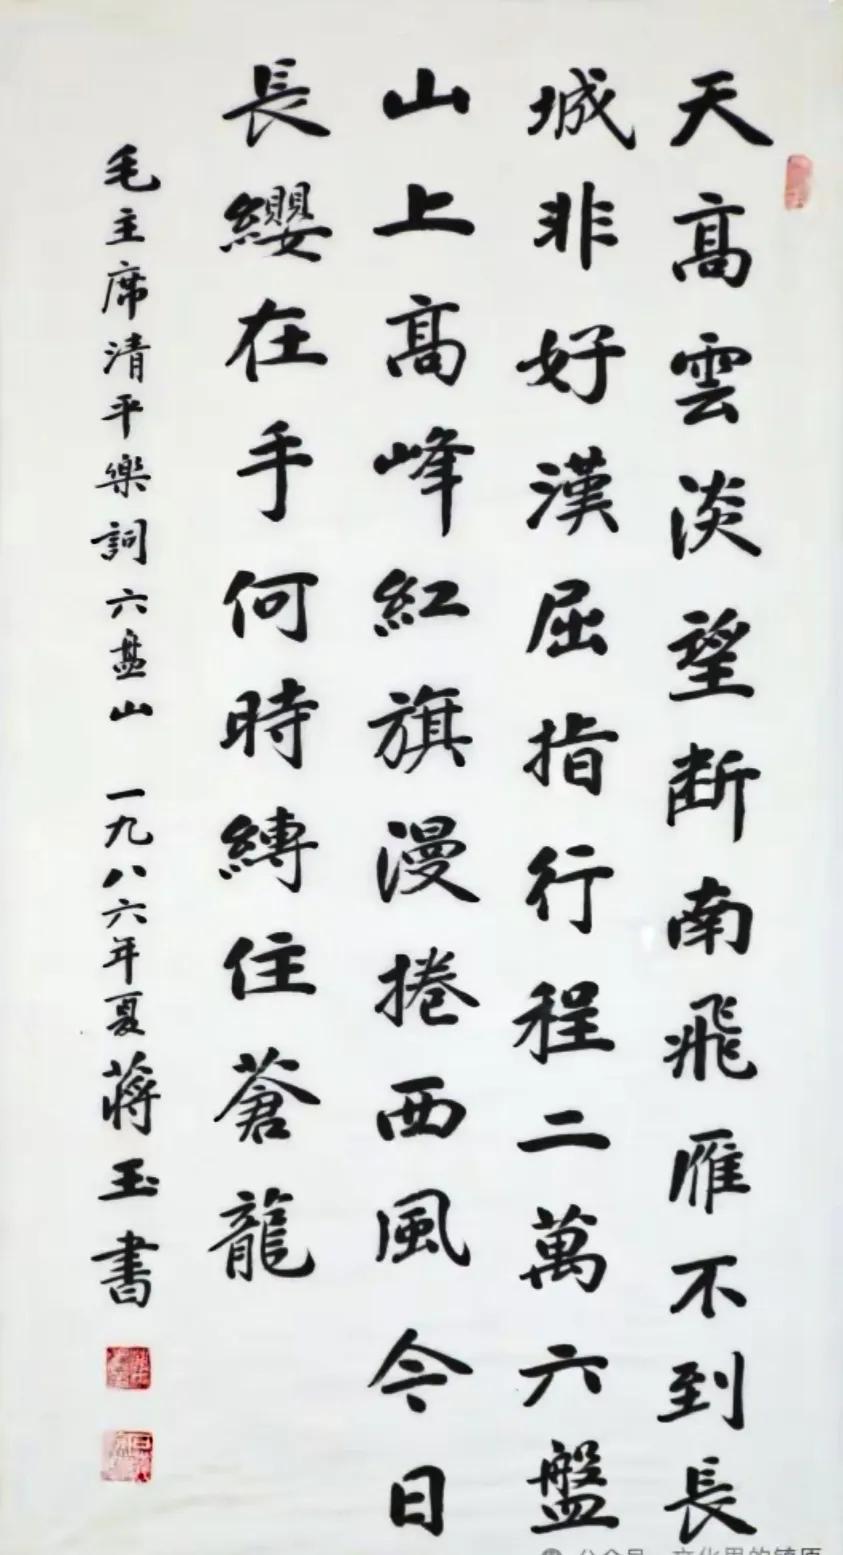 天高雲淡望断南飛雁不到長
城非好漢屈指行程二萬六盤
山上高峰紅旗漫捲西風今日
長纓在手何時縛住蒼龍
毛主席清平樂詞六盘山 一九八六年夏蔣玉書